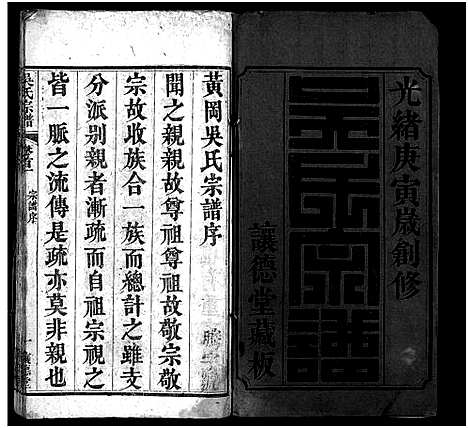 光緒庚寅歲創修
吳氏宗譜
讓德堂藏板
黃岡吳氏宗譜序
聞之親親故尊祖尊祖故敬宗敬
宗故收族合一族而總計之雖支
分派別親者漸疏而自祖宗視之
皆一脈之流傳是疏亦莫非親也
吳氏宗譜
卷首一
宗譜序
一